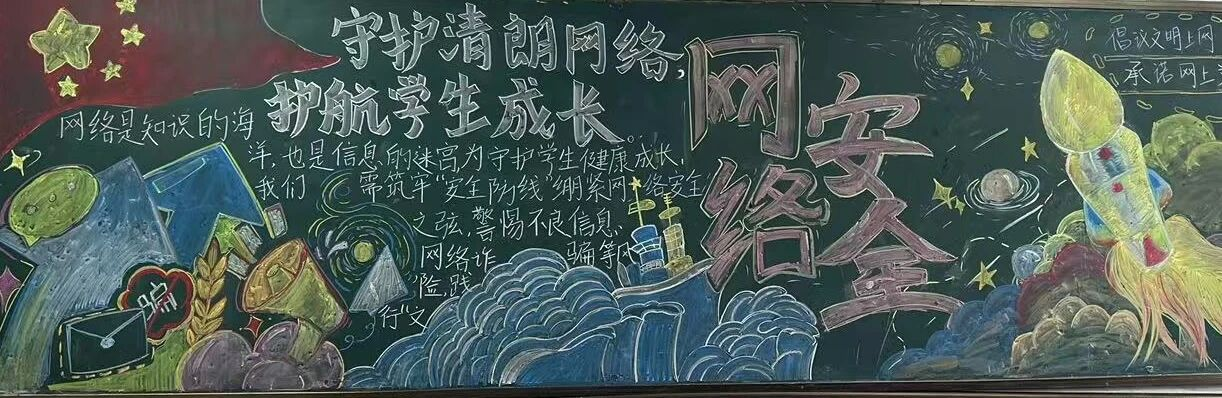 守护清朗网络,
护航学生成长
网络是知识的海
洋,也是信息的迷宫,为守护学生健康成长,
我们 需筑牢"安全防线"绷紧网络安全
之弦,警惕不良信息、
网络诈 骗等风
险,践
行"文
骗
网络
安全
倡议文明上网
承诺网上